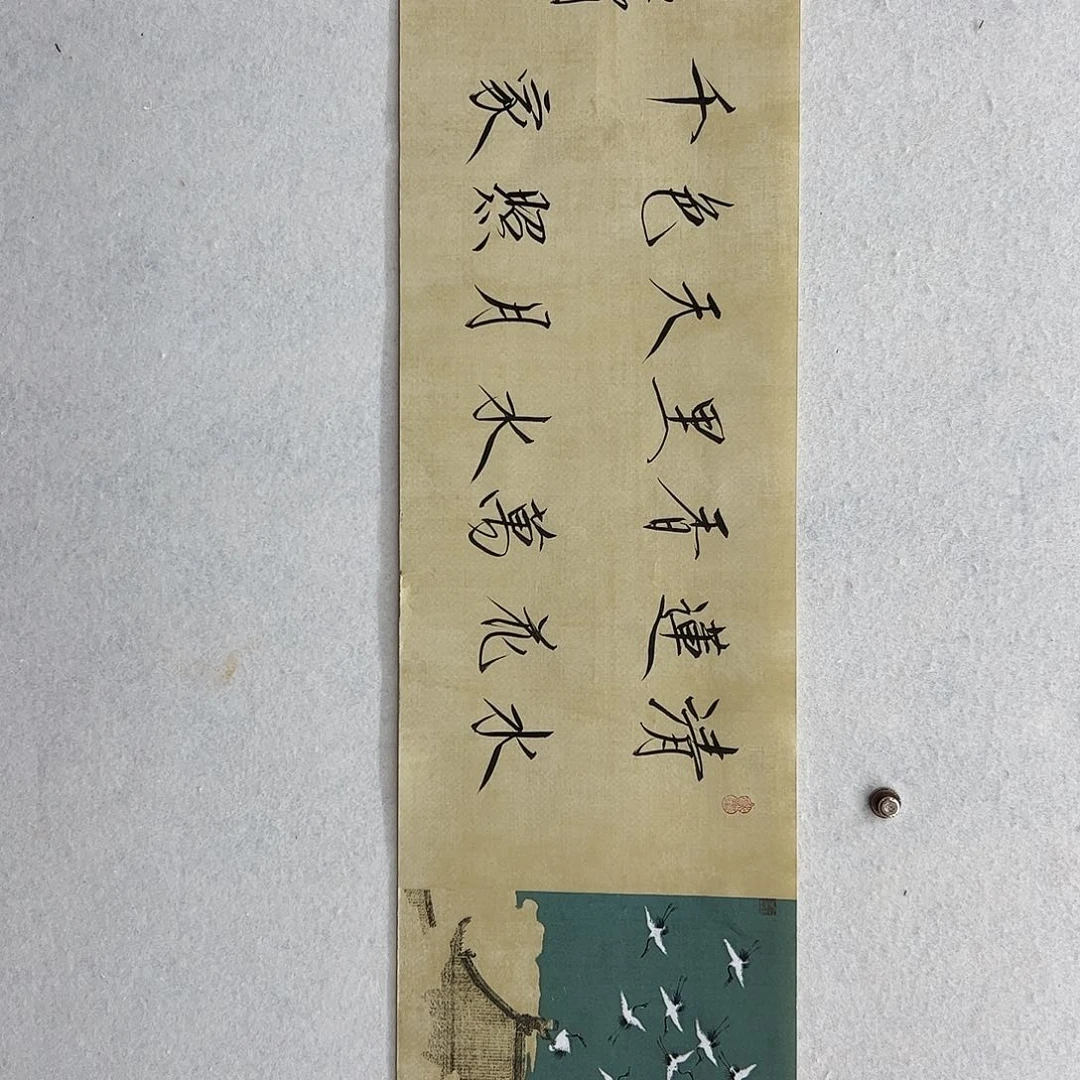 清水
蓮花
香萬
里水
天月
色照
千家